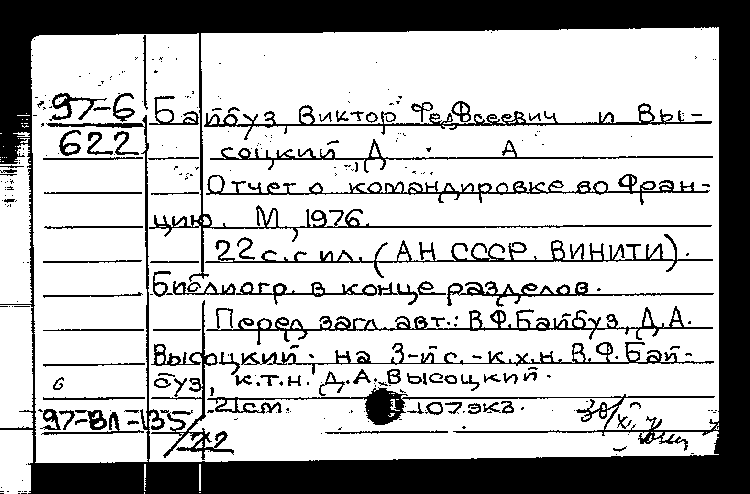 97-6 Байбуз, Виктор и Вы-
622 соцкий, Д. А
Отчет о командировке во Фран-
цию. М., 1976.
22 с. с ил. (АН СССР. ВИНИТИ).
Библиогр. в конце разделов.
Перед загл. авт.: В.Ф.Байбуз, Д.А.
Высоцкий; на 3-й с. - к.х.н. В.Ф.Бай-
6 буз, к.т.н. Д.А.Высоцкий.
97-ВЛ-135/22 21см. 107экз.